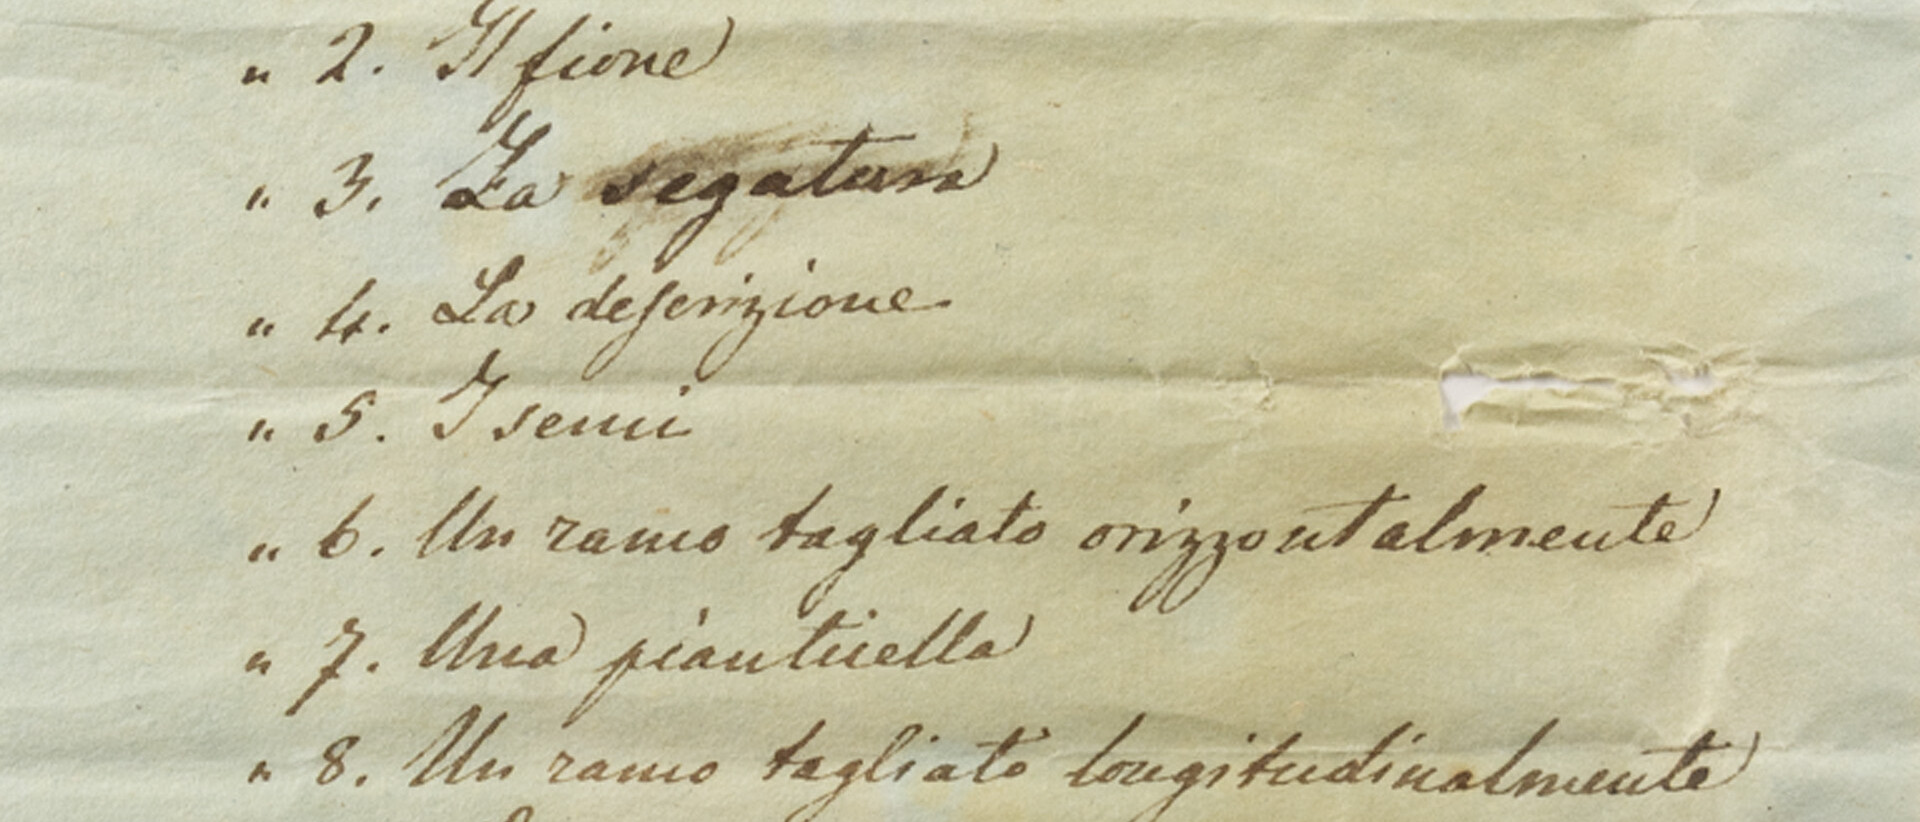 " 2. Il fiore
" 3. La segatura
" 4. La descrizione
" 5. I semi
" 6. Un ramo tagliato orizzontalmente
" 7. Una pianticella
" 8. Un ramo tagliato longitudinalmente